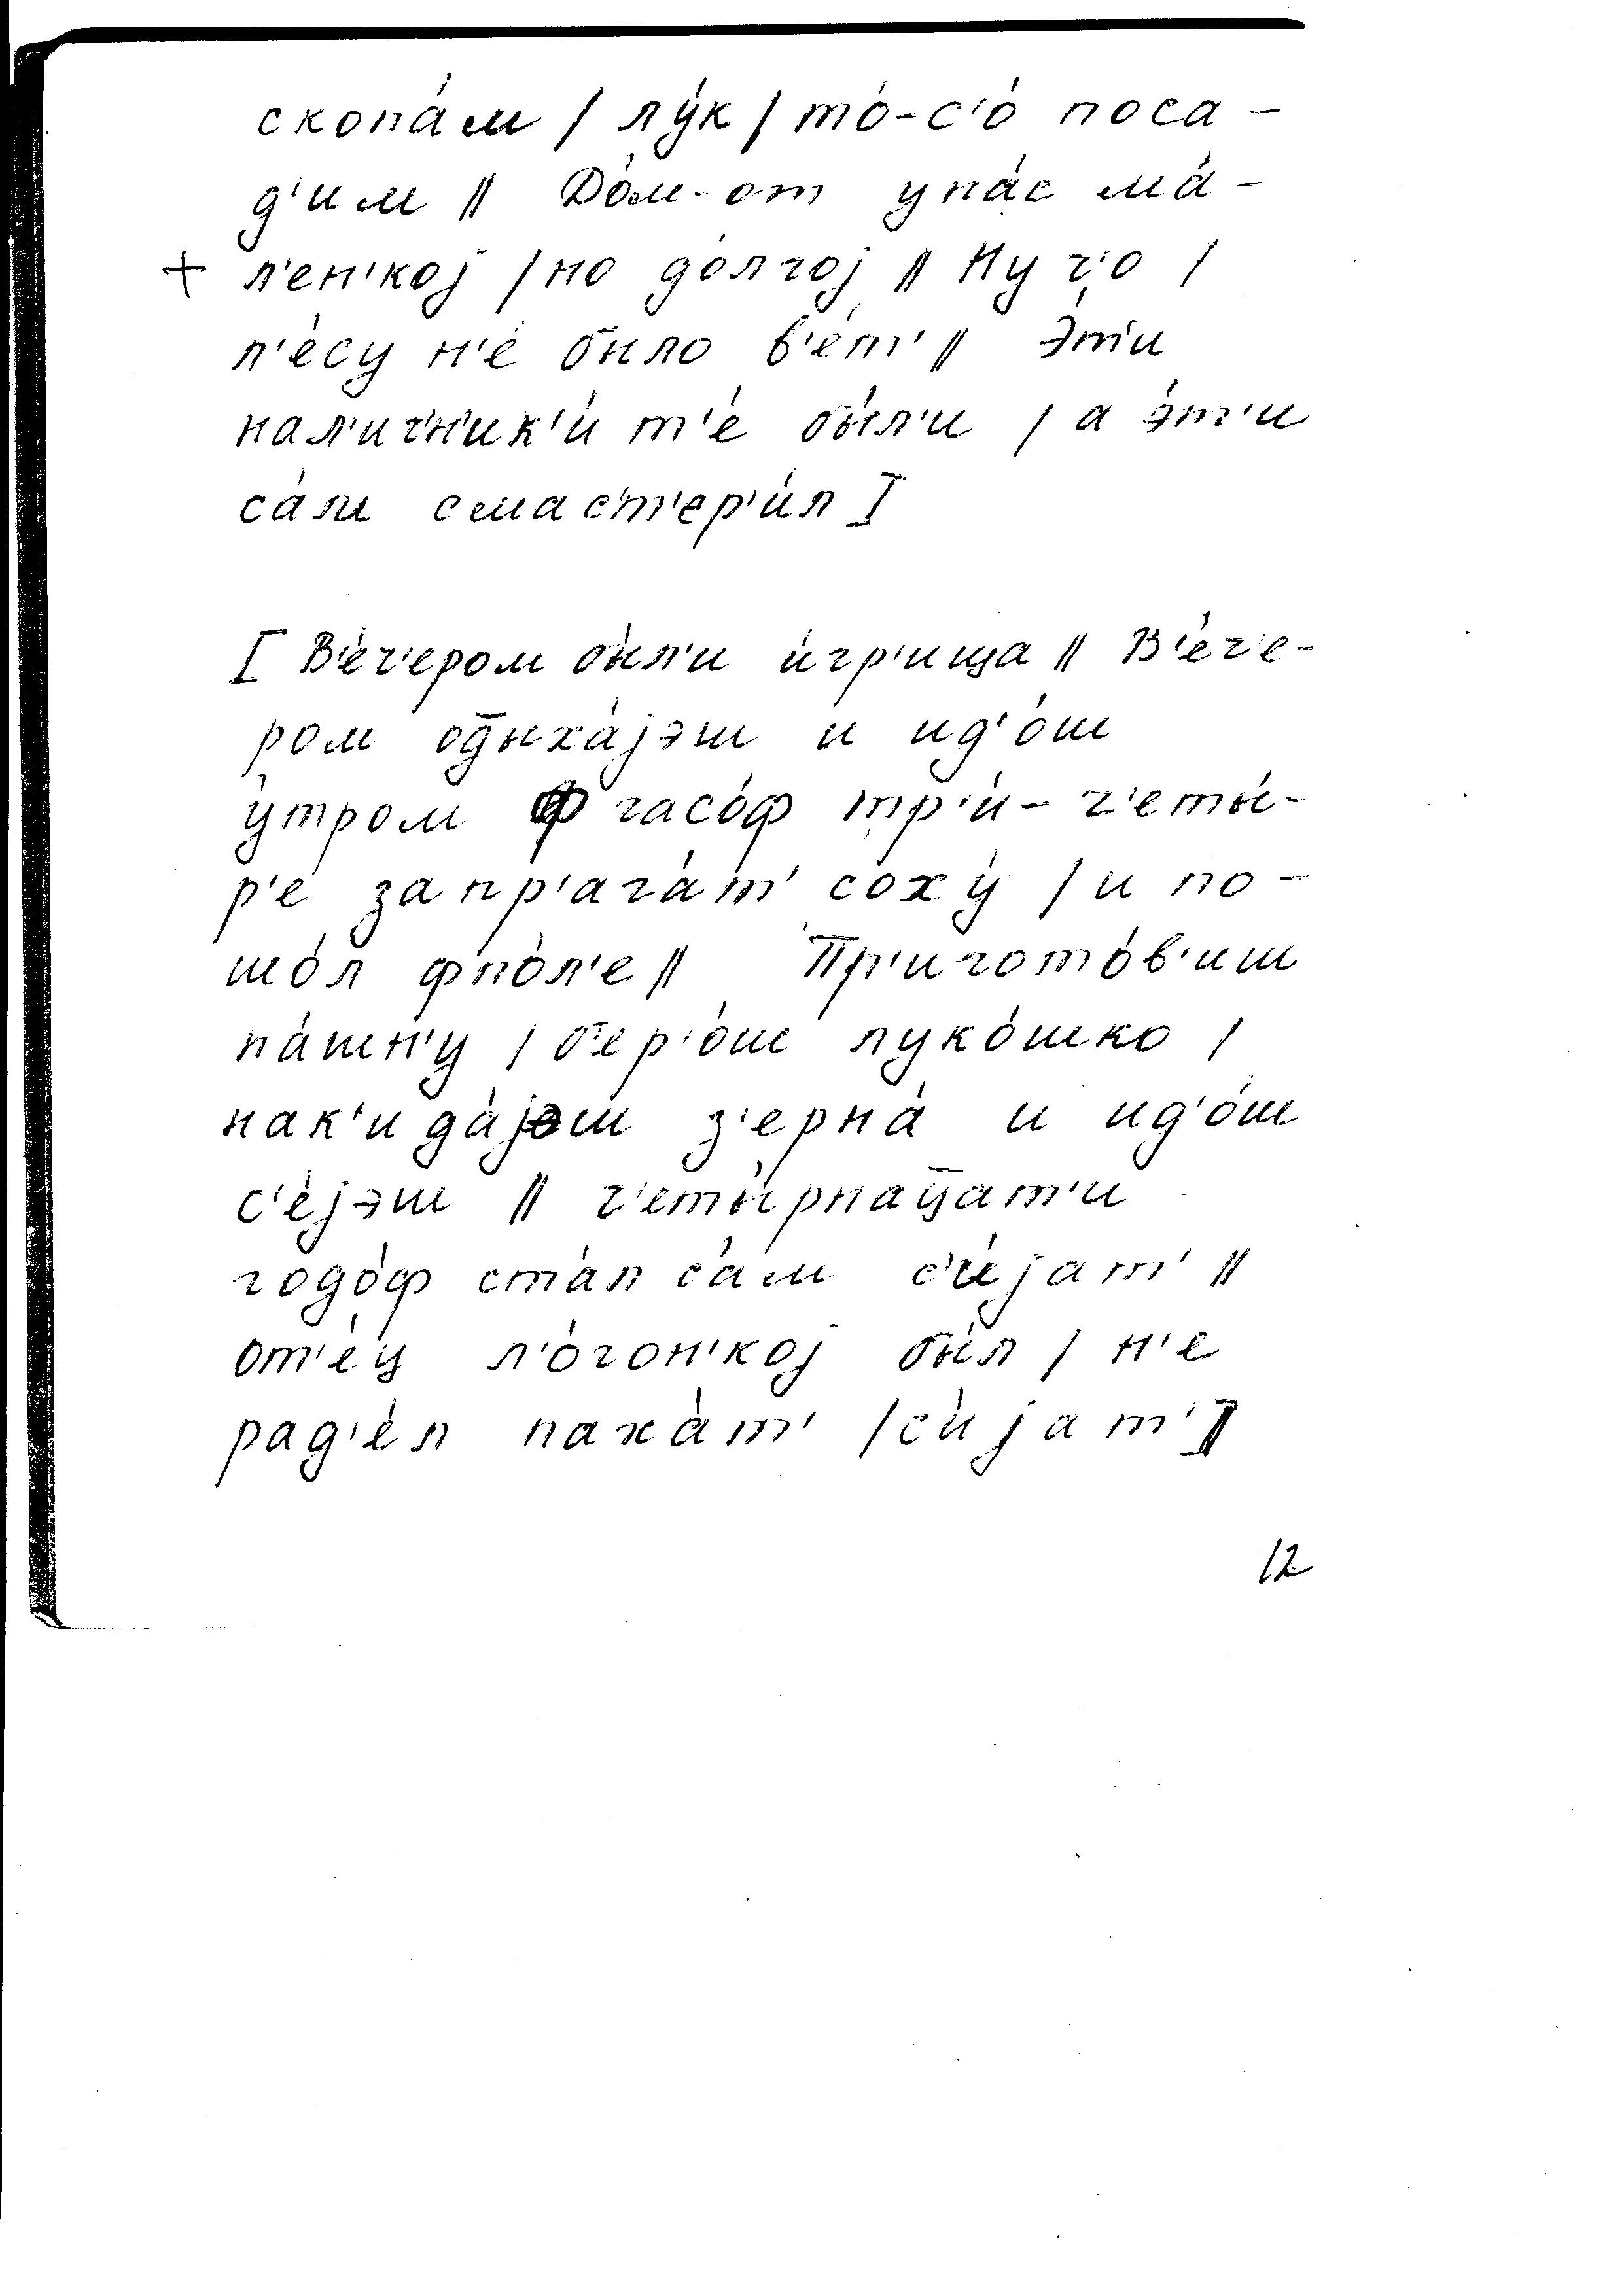 скопа́м / лу́к / то́-с'о́ поса-
д'им // До́м-от упа́с ма́-
+ л'ен'кој / но до́лгој // Ну ч'о /
л'е́су н'е́ было в'е́т' // Э́т'и
нал'ич'н'ик'и́ т'е́ бы́л'и / а э́т'и
са́м смаст'ер'и́л ]

[ В'е́ч'ером бы́л'и и́гр'ища // В'е́ч'е-
ром од̄ыха́јэш и ид'о́ш
у́тром ф часо́ф тр'и́ - ч'еты́-
р'е запр'ага́т' соху́ / и по-
шо́л фпо́л'е // Пр'игото́в'иш
па́шн'у / б'ер'о́ш луко́шко /
нак'ида́јэш з'ерна́ и ид'о́ш
с'е́јэш // ч'еты́рнац̄ат'и
годо́ф ста́л са́м с'и́јат' //
от'е́ц л'о́гон'кој бы́л / н'е
рад'е́л паха́т' / с'и́јат' ]
12